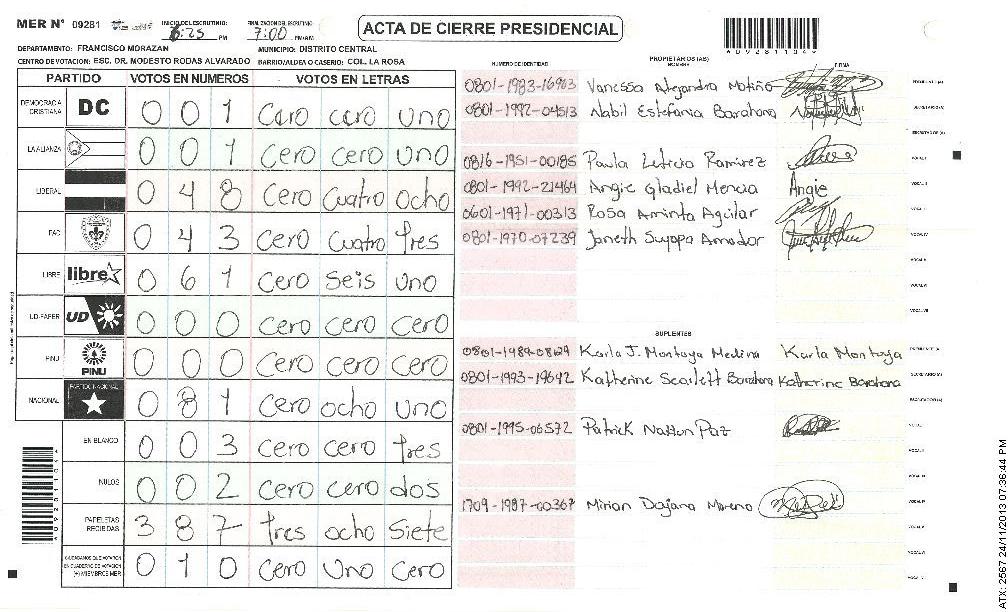 MER N° 09281 INICIO DEL ESCRUTINIO: 6:25 PM FINALIZACION DEL ESCRUTINIO 7:00 PM/AM ACTA DE CIERRE PRESIDENCIAL
DEPARTAMENTO: FRANCISCO MORAZAN MUNICIPIO: DISTRITO CENTRAL
CENTRO DE VOTACION: ESC. DR. MODESTO RODAS ALVARADO BARRIO/ALDEA O CASERIO: COL. LA ROSA
PARTIDO VOTOS EN NUMEROS VOTOS EN LETRAS
DEMOCRACIA CRISTIANA DC 0 0 1 Cero cero uno
LA ALIANZA 0 0 1 Cero cero uno
LIBERAL 0 4 8 Cero Cuatro ocho
PAC 0 4 3 Cero Cuatro tres
LIBRE libre 0 6 1 Cero seis uno
UD-FAPER UD 0 0 0 Cero cero cero
PINU PINU 0 0 0 Cero cero cero
NACIONAL PARTIDO NACIONAL 0 8 1 Cero ocho uno
EN BLANCO 0 0 3 Cero cero tres
NULOS 0 0 2 Cero cero dos
PAPELETAS RECIBIDAS 3 8 7 tres ocho siete
CIUDADANOS QUE VOTARON EN CUADERNO DE VOTACION (+) MIEMBROS MER 0 1 0 Cero uno cero
PROPIETARIOS (AS)
NUMERO DE IDENTIDAD NOMBRE FIRMA
0801-1983-16963 Vanessa Alejandra Matiño
0801-1992-04513 Nabil Estefania Barahona
0816-1951-00185 Paula Leticia Ramirez
0801-1992-21464 Angie Gladiel Mencia Angie
0601-1971-00313 Rosa Aminta Aguilar
0801-1970-07239 Janeth Suyapa Amador
SUPLENTES
0801-1989-08129 Karla J. Montoya Medina Karla Montoya
0801-1993-19642 Katherine Scarlett Barahona Katherine Barahona
0801-1995-06572 Patrick Nattan Paz
1709-1987-00367 Mirian Dajana Moreno
ATX: 2567 24/11/2013 07:36:44 PM